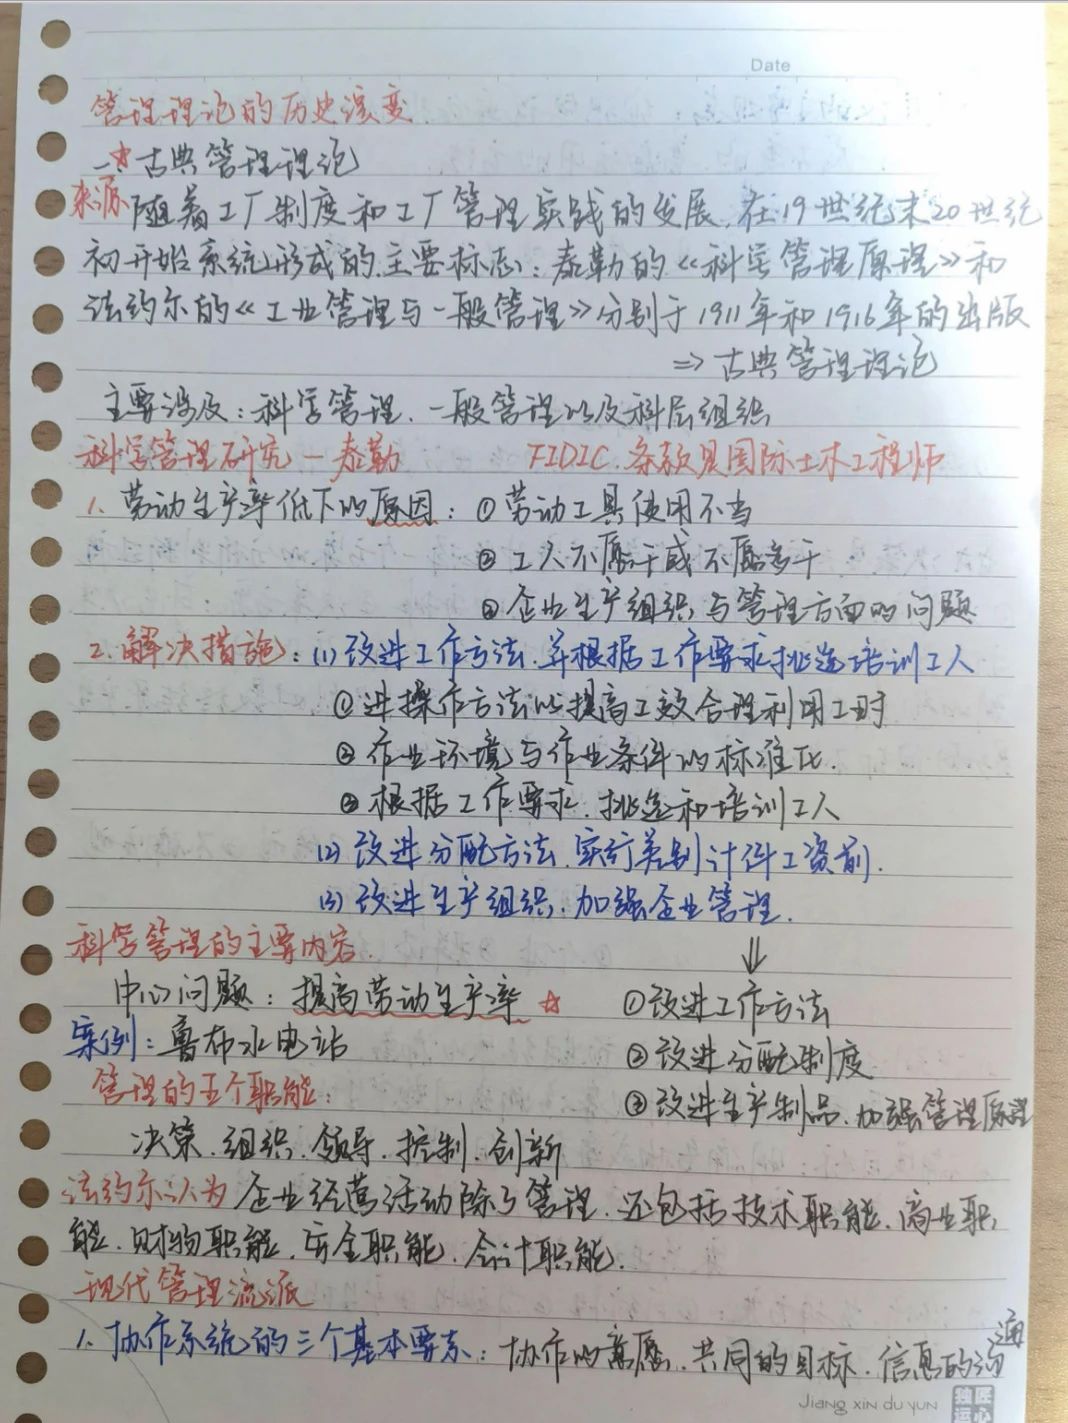 Date
管理理论的历史演变
一☆古典管理理论
来源 随着工厂制度和工厂管理实践的发展,在19世纪末20世纪
初开始系统形成的.主要标志:泰勒的《科学管理原理》和
法约尔的《工业管理与一般管理》分别于1911年和1916年的出版
⇒古典管理理论
主要涉及:科学管理.一般管理以及科层组织
科学管理研究一泰勒 FIDIC.条款是国际土木工程师
1.劳动生产率低下的原因:①劳动工具使用不当
②工人不愿干或不愿多干
③企业生产组织与管理方面的问题
2.解决措施:(1)改进工作方法.并根据工作要求挑选培训工人
①进操作方法以提高工效合理利用工时
②作业环境与作业条件的标准化.
③根据工作要求.挑选和培训工人
(2)改进分配方法.实行差别计件工资制.
(3)改进生产组织.加强企业管理.
科学管理的主要内容.
⇓
中心问题:提高劳动生产率☆ ①改进工作方法
案例:鲁布水电站 ②改进分配制度
管理的五个职能: ③改进生产制品.加强管理原理
决策.组织.领导.控制.创新
法约尔认为企业经营活动除了管理.还包括技术职能.商业职
能.财物职能.安全职能.会计职能.
现代管理流派
1.协作系统的三个基本要素:协作的意愿.共同的目标.信息的沟通
Jiang xin du yun
独匠
运心